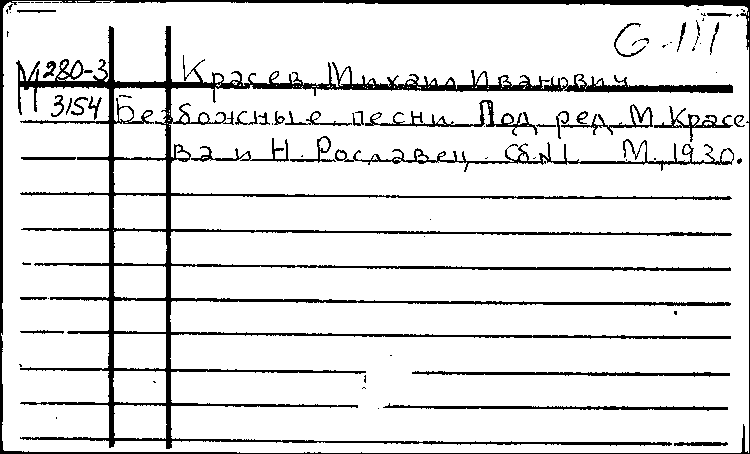 G.III
М 280-3 Красев, Михаил Иванович
3154 Безбожные песни. Под ред. М. Красе-
ва и Н. Рославец. Сб. N1. М., 1930.